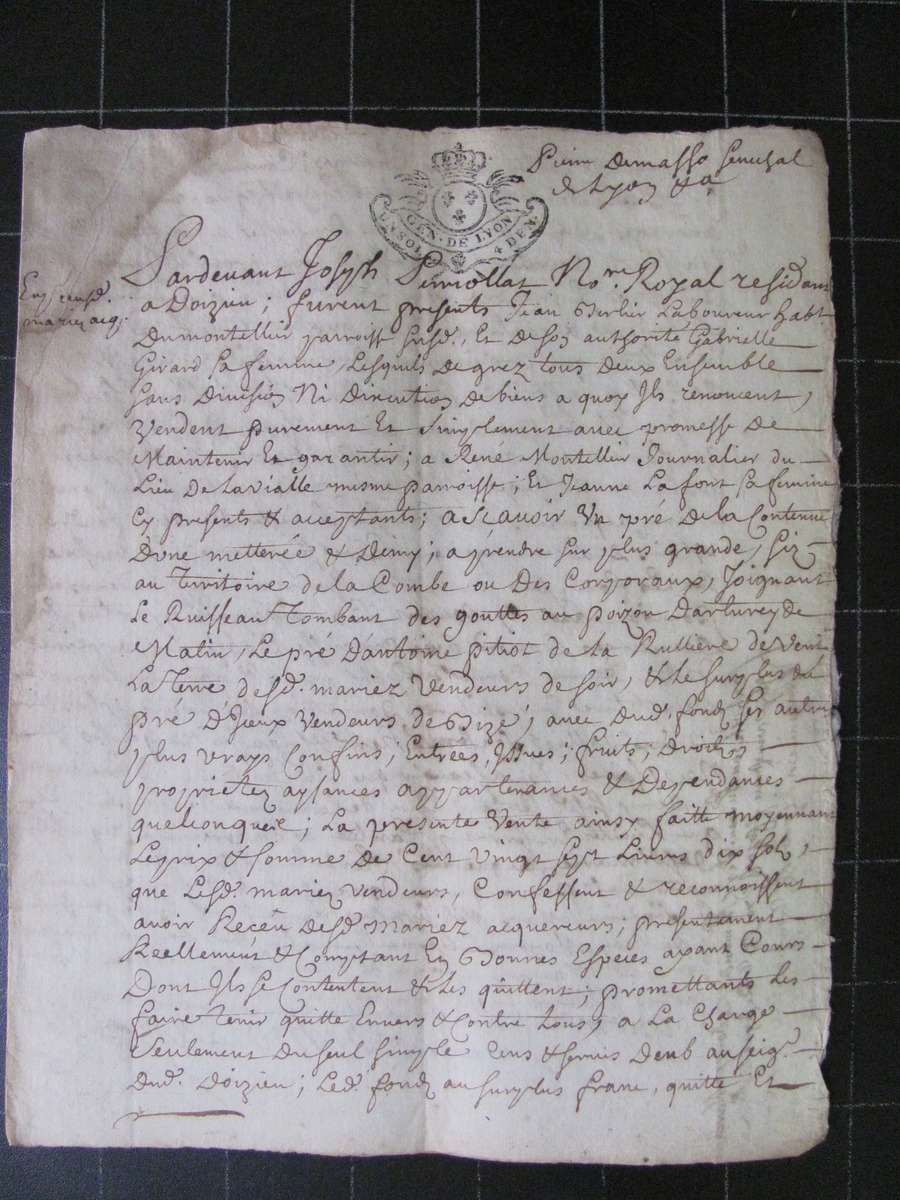 Pierre Demasso Senechal
de Lyon &a
UN SOL GEN · DE LYON 4 DEN ·
Pardevant Joseph Perriollat No.re Royal residant
Enj censd.
mariez acq.
a Doizieu ; furent presents Jean Berlier Laboureur habt
Dumontellier parroisse susd. Et de son authorité Gabrielle
Girard sa femme, Lesquels de grez tous deux Ensemble
sans Division Ni Discution De biens a quoy Ils renoncent,
Vendent purement Et simplement avec promesse de
Maintenir Et garantir ; a René Montellier Journalier du
Lieu De Lavialle mesme parroisse ; Et Jeanne Lafont sa femme
Cy presents & acceptants ; ascavoir Un pré de la Contenue
D'une metterée & Demy ; a prendre sur plus grande, siz
au Territoire de la Combe ou Des Corporaux, Joignant
Le Ruisseau Tombant des gouttes au poizon Darturey de
Matin, Le pré d'antoine pitiot de la Rulliere de Vent
La Terre desd. mariez Vendeurs de soir, & le surplus du
pré D'Iceux Vendeurs de Bize, avec Dud. fond ses autres
plus vrays Confins, Entrées, Issues ; fruits ; droits
proprietez aysances appartenances & Dependances
quelconques ; La presente Vente ainsy faitte moyennant
Le prix & somme De Cent vingt sept Livres dix sols,
que Lesd. mariez vendeurs, Confessent & reconnoissent
avoir Reçeu desd. Mariez acquereurs ; presentement
Reellement & Comptant En Bonnes Especes ayant Cours
Dont Ils se Contentent & Les quittent ; promettants Les
faire Tenir quitte Envers & Contre tous, a La Charge
seulement Du seul simple Cens & servis Deub au seigr.
Dud. Doizieu ; Led. fond au surplus franc, quitte Et